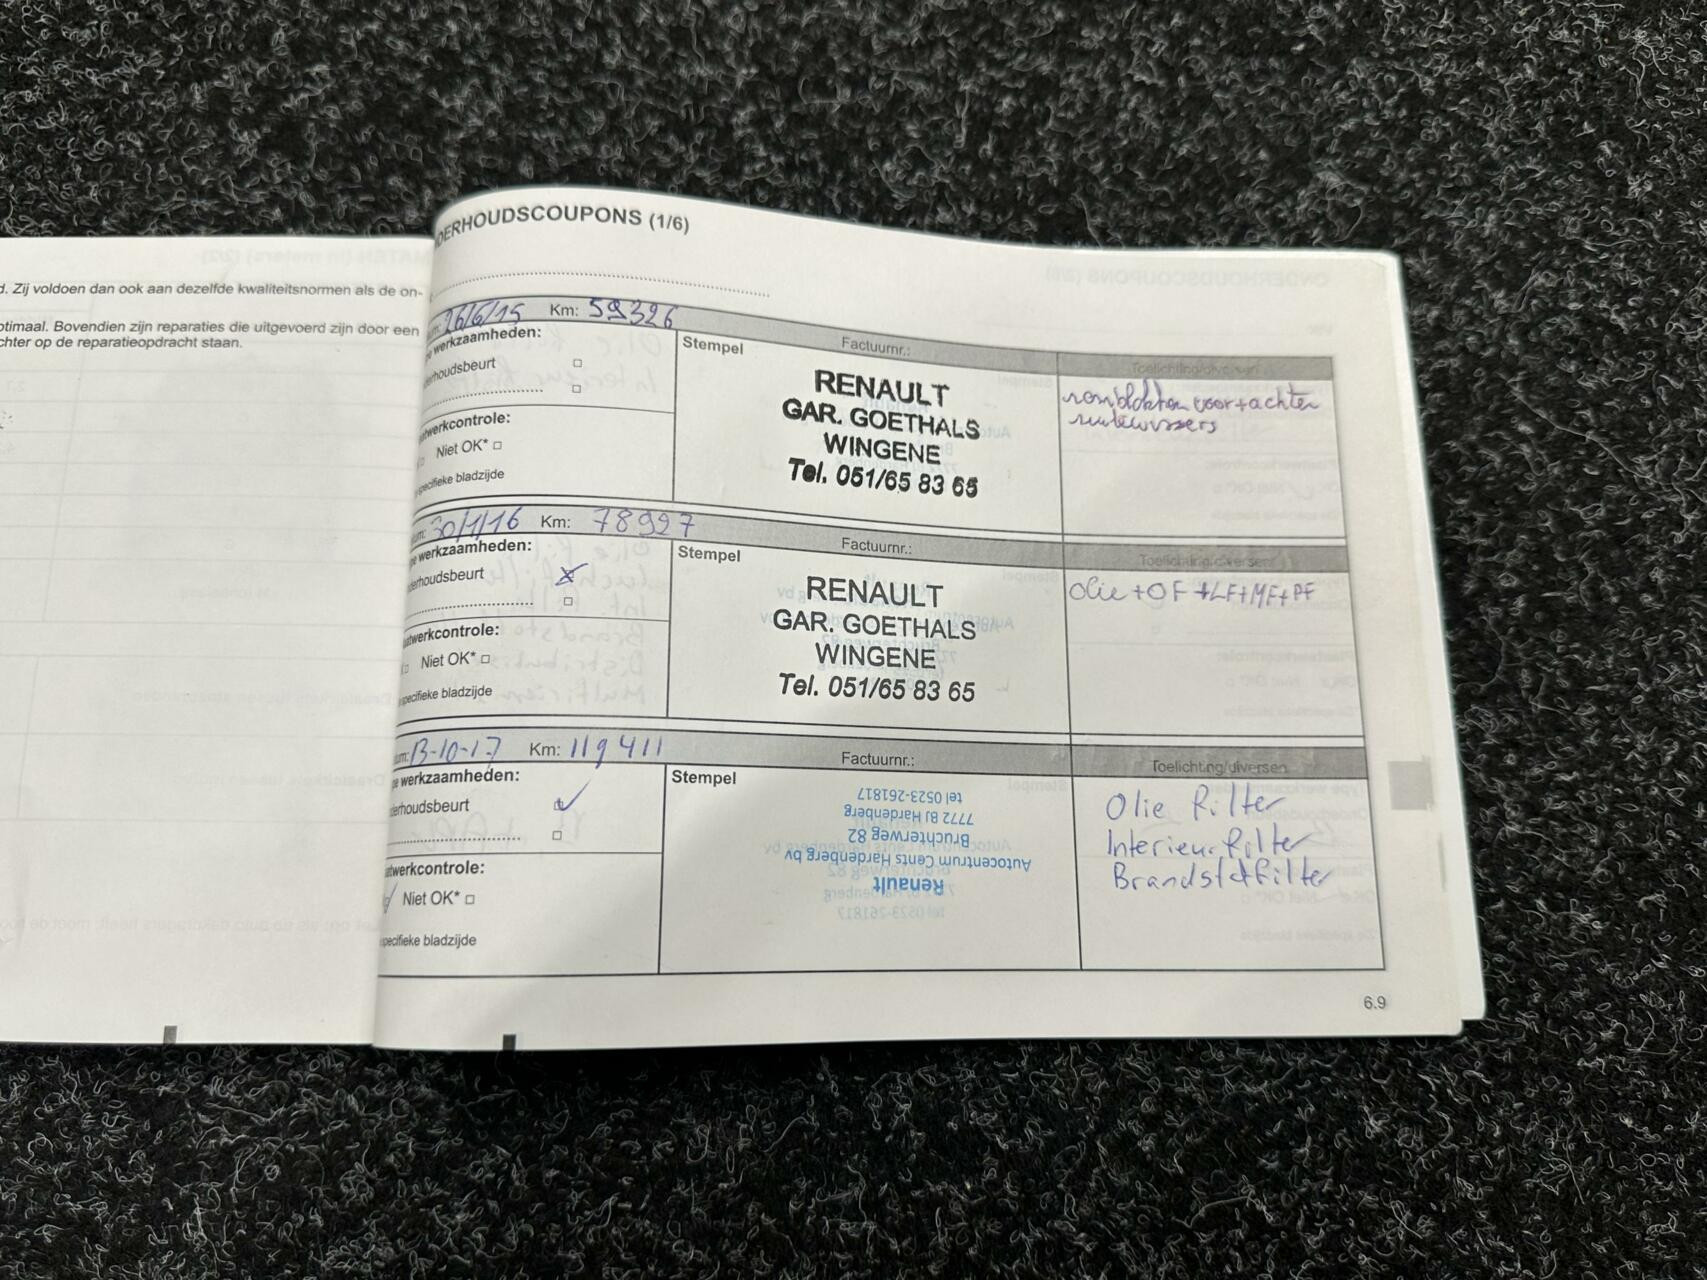 d. Zij voldoen dan ook aan dezelfde kwaliteitsnormen als de on-
ptimaal. Bovendien zijn reparaties die uitgevoerd zijn door een
chter op de reparatieopdracht staan.
DERHOUDSCOUPONS (1/6)
26/6/15 Km: 59326
werkzaamheden:
derhoudsbeurt
atwerkcontrole:
Niet OK*
specifieke bladzijde
Stempel
Factuurnr.:
RENAULT
GAR. GOETHALS
WINGENE
Tel. 051/65 83 65
Toelichting/diversen
remblokken voor+achter
ruitewissers
30/1/16 Km: 78927
ne werkzaamheden:
derhoudsbeurt
atwerkcontrole:
Niet OK*
specifieke bladzijde
Stempel
Factuurnr.:
RENAULT
GAR. GOETHALS
WINGENE
Tel. 051/65 83 65
Toelichting/diversen
Olie+OF+LF+MF+PF
um: 13-10-17 Km: 119411
ne werkzaamheden:
derhoudsbeurt
atwerkcontrole:
Niet OK*
specifieke bladzijde
Stempel
Factuurnr.:
Renault
Autocentrum Cents Hardenberg bv
Bruchterweg 82
7772 BJ Hardenberg
tel 0523-261817
Toelichting/diversen
Olie filter
Interieurfilter
Brandstoffilter
6.9